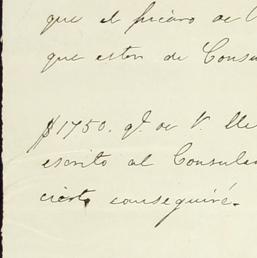 que el pícaro de
que estén de Consu
$1750. qe. de V. lle
escrito al Consulad
cierto conseguiré.